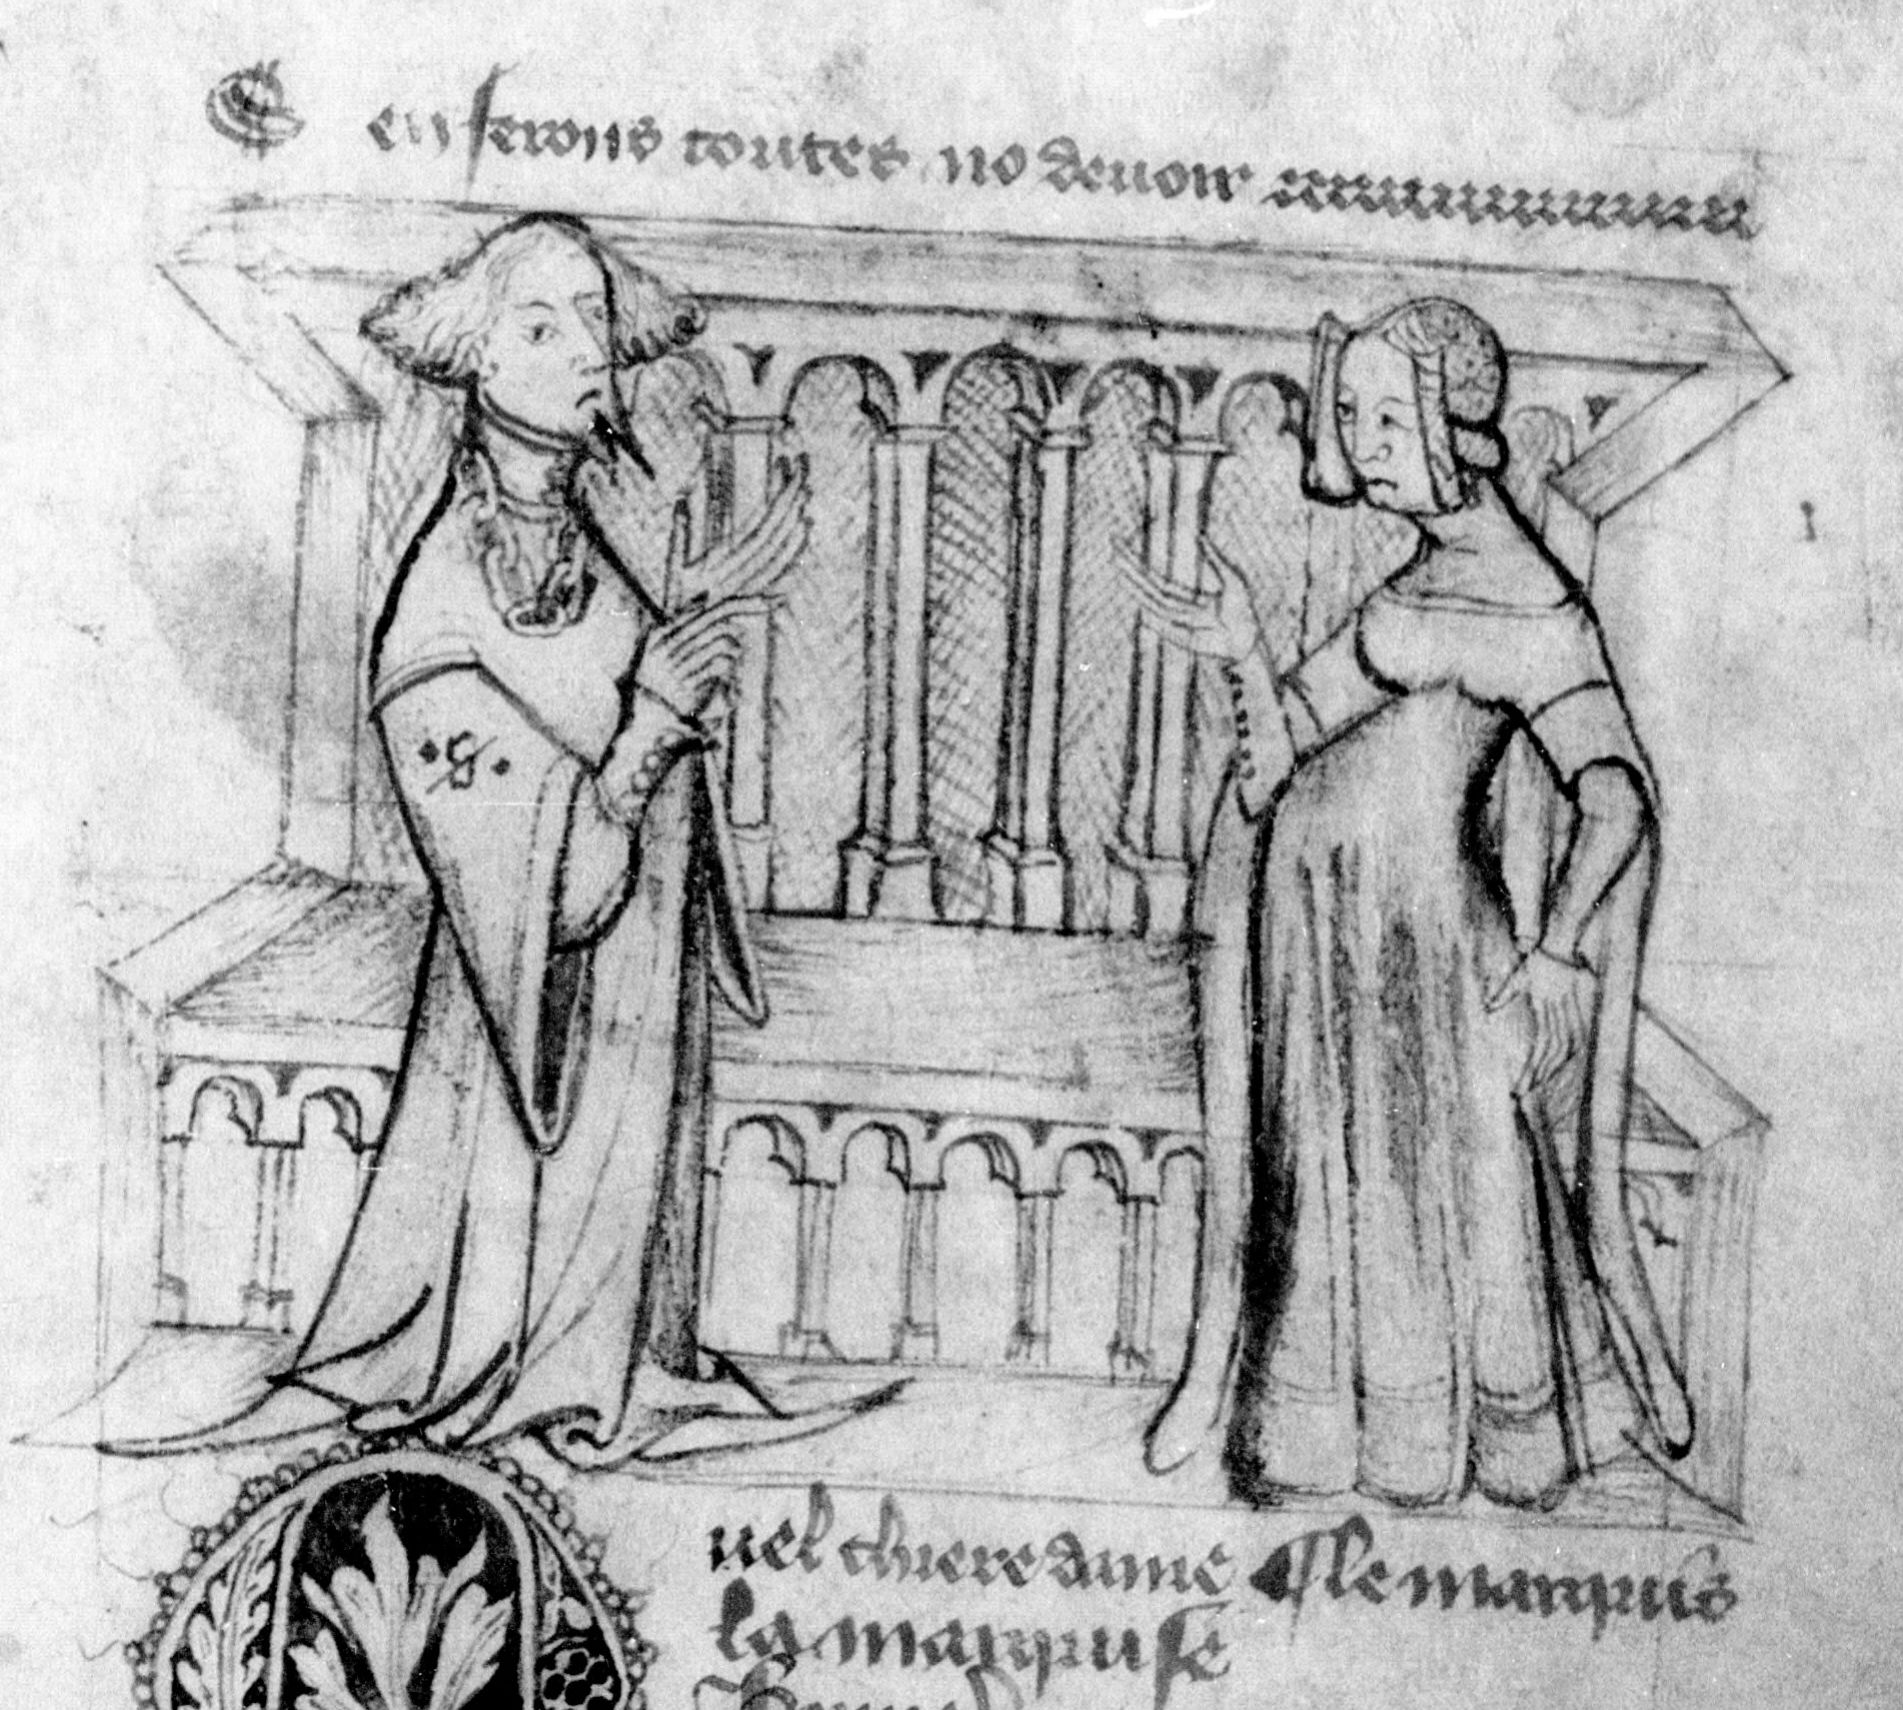 E en ferons toutes no deuoir
G
uel chiere dame ¶ le marquis
la marquise